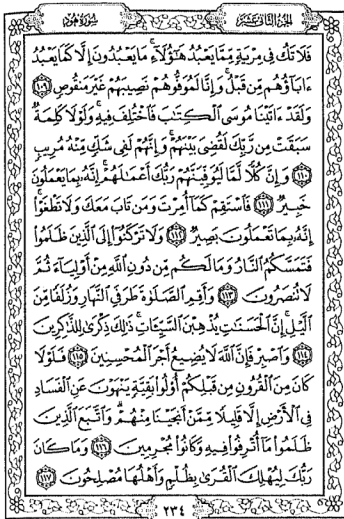 الجزء الثاني عشر سورة هود
فَلَا تَكُ فِي مِرْيَةٍ مِّمَّا يَعْبُدُ هَٰٓؤُلَآءِ ۚ مَا يَعْبُدُونَ إِلَّا كَمَا يَعْبُدُ
ءَابَآؤُهُم مِّن قَبْلُ ۚ وَإِنَّا لَمُوَفُّوهُمْ نَصِيبَهُمْ غَيْرَ مَنقُوصٍ ١٠٩
وَلَقَدْ ءَاتَيْنَا مُوسَى ٱلْكِتَٰبَ فَٱخْتُلِفَ فِيهِ ۚ وَلَوْلَا كَلِمَةٌ
سَبَقَتْ مِن رَّبِّكَ لَقُضِىَ بَيْنَهُمْ ۚ وَإِنَّهُمْ لَفِى شَكٍّ مِّنْهُ مُرِيبٍ
١١٠ وَإِنَّ كُلًّا لَّمَّا لَيُوَفِّيَنَّهُمْ رَبُّكَ أَعْمَٰلَهُمْ ۚ إِنَّهُۥ بِمَا يَعْمَلُونَ
خَبِيرٌ ١١١ فَٱسْتَقِمْ كَمَآ أُمِرْتَ وَمَن تَابَ مَعَكَ وَلَا تَطْغَوْا۟ ۚ
إِنَّهُۥ بِمَا تَعْمَلُونَ بَصِيرٌ ١١٢ وَلَا تَرْكَنُوٓا۟ إِلَى ٱلَّذِينَ ظَلَمُوا۟
فَتَمَسَّكُمُ ٱلنَّارُ وَمَا لَكُم مِّن دُونِ ٱللَّهِ مِنْ أَوْلِيَآءَ ثُمَّ
لَا تُنصَرُونَ ١١٣ وَأَقِمِ ٱلصَّلَوٰةَ طَرَفَىِ ٱلنَّهَارِ وَزُلَفًا مِّنَ
ٱلَّيْلِ ۚ إِنَّ ٱلْحَسَنَٰتِ يُذْهِبْنَ ٱلسَّيِّـَٔاتِ ۚ ذَٰلِكَ ذِكْرَىٰ لِلذَّٰكِرِينَ
١١٤ وَٱصْبِرْ فَإِنَّ ٱللَّهَ لَا يُضِيعُ أَجْرَ ٱلْمُحْسِنِينَ ١١٥ فَلَوْلَا
كَانَ مِنَ ٱلْقُرُونِ مِن قَبْلِكُمْ أُو۟لُوا۟ بَقِيَّةٍ يَنْهَوْنَ عَنِ ٱلْفَسَادِ
فِى ٱلْأَرْضِ إِلَّا قَلِيلًا مِّمَّنْ أَنجَيْنَا مِنْهُمْ ۗ وَٱتَّبَعَ ٱلَّذِينَ
ظَلَمُوا۟ مَآ أُتْرِفُوا۟ فِيهِ وَكَانُوا۟ مُجْرِمِينَ ١١٦ وَمَا كَانَ
رَبُّكَ لِيُهْلِكَ ٱلْقُرَىٰ بِظُلْمٍ وَأَهْلُهَا مُصْلِحُونَ ١١٧
٢٣٤